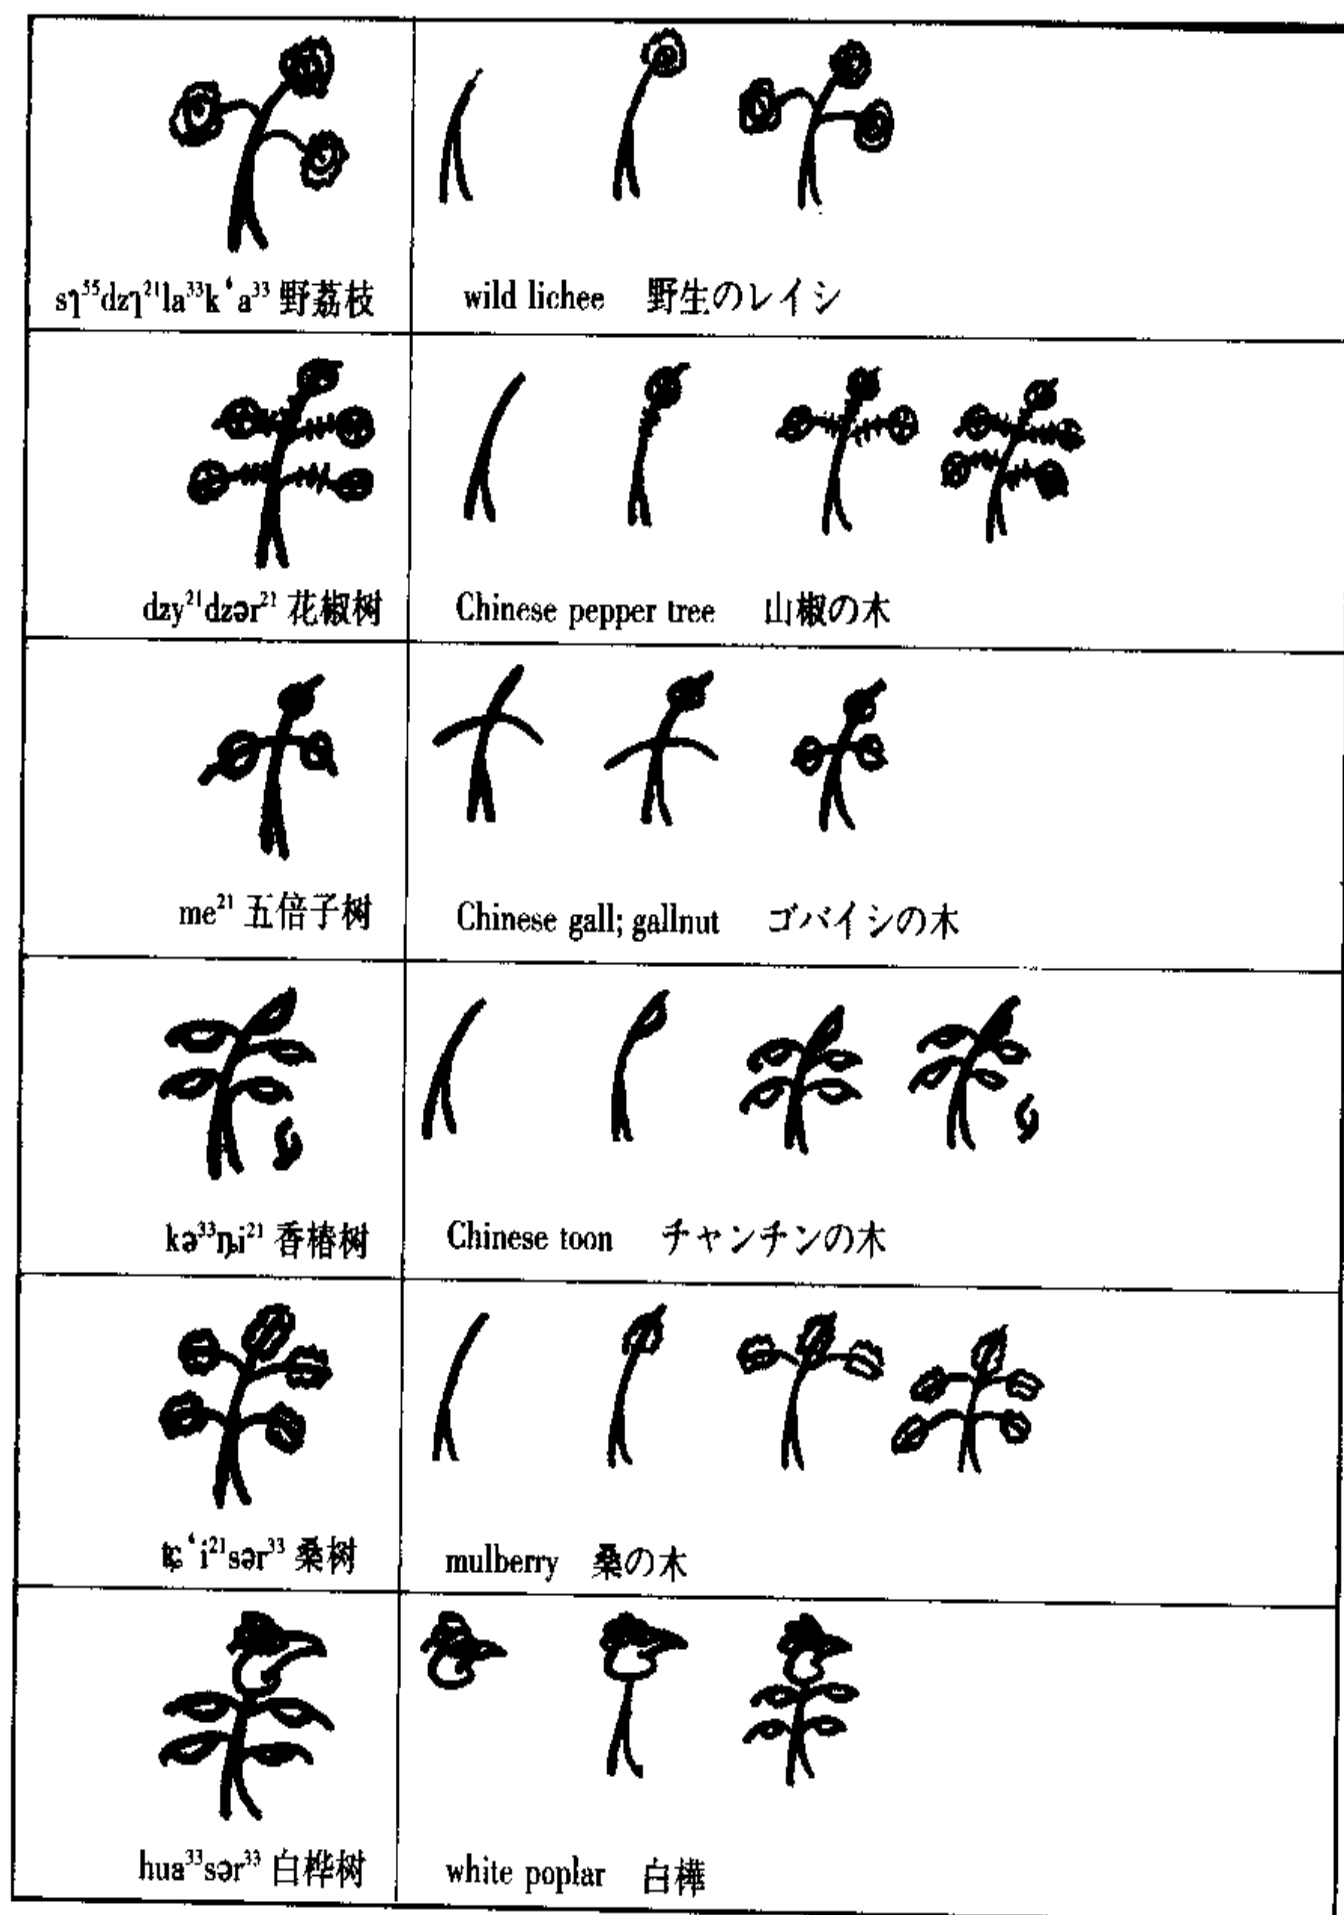 sɿ⁵⁵dzɿ²¹la³³kʻa³³ 野荔枝 wild lichee 野生のレイシ
dzy²¹dzər²¹ 花椒树 Chinese pepper tree 山椒の木
me²¹ 五倍子树 Chinese gall; gallnut ゴバイシの木
kə³³ȵi²¹ 香椿树 Chinese toon チャンチンの木
tɕʻi²¹sər³³ 桑树 mulberry 桑の木
hua³³sər³³ 白桦树 white poplar 白樺